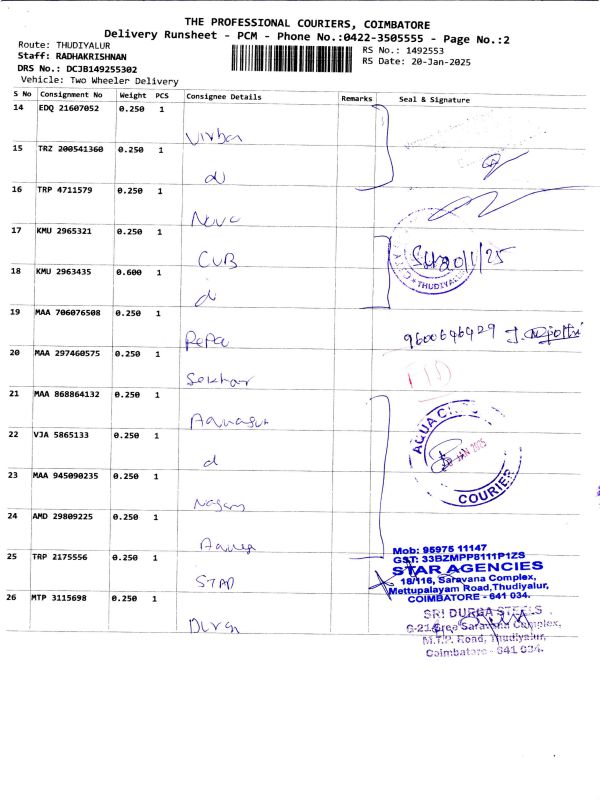 THE PROFESSIONAL COURIERS, COIMBATORE
Delivery Runsheet - PCM - Phone No.:0422-3505555 - Page No.:2
Route: THUDIYALUR
Staff: RADHAKRISHNAN
DRS No.: DCJB149255302
Vehicle: Two Wheeler Delivery
RS No.: 1492553
RS Date: 20-Jan-2025
S No Consignment No Weight PCS Consignee Details Remarks Seal & Signature
14 EDQ 21607052 0.250 1
15 TRZ 200541360 0.250 1
16 TRP 4711579 0.250 1
17 KMU 2965321 0.250 1
CUB
20/1/25
THUDIYALUR
18 KMU 2963435 0.600 1
19 MAA 706076508 0.250 1
9600646429
20 MAA 297460575 0.250 1
Sekhar
21 MAA 868864132 0.250 1
22 VJA 5865133 0.250 1
AQUA
JAN 2025
COURIER
23 MAA 945090235 0.250 1
24 AMD 29809225 0.250 1
25 TRP 2175556 0.250 1
STAR
Mob: 95975 11147
GST: 33BZMPP8111P1ZS
STAR AGENCIES
18/116, Saravana Complex,
Mettupalayam Road,Thudiyalur,
COIMBATORE - 641 034.
26 MTP 3115698 0.250 1
Durga
SRI DURGA STEELS
G-21,Sree Saravana Complex,
M.T.P. Road, Thudiyalur,
Coimbatore - 641 034.